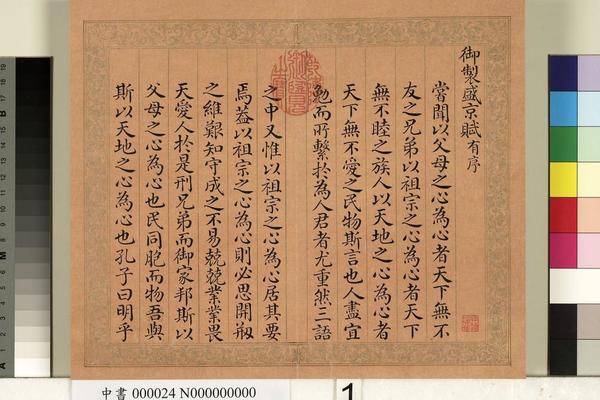 御製盛京賦有序
嘗聞以父母之心為心者天下無不
友之兄弟以祖宗之心為心者天下
無不睦之族人以天地之心為心者
天下無不愛之民物斯言也人盡宜
勉而所繫於為人君者尤重然三語
之中又惟以祖宗之心為心居其要
焉葢以祖宗之心為心則必思開刱
之維艱知守成之不易兢兢業業畏
天愛人於是刑兄弟而御家邦斯以
父母之心為心也民同胞而物吾與
斯以天地之心為心也孔子曰明乎
中書 000024 N000000000
1